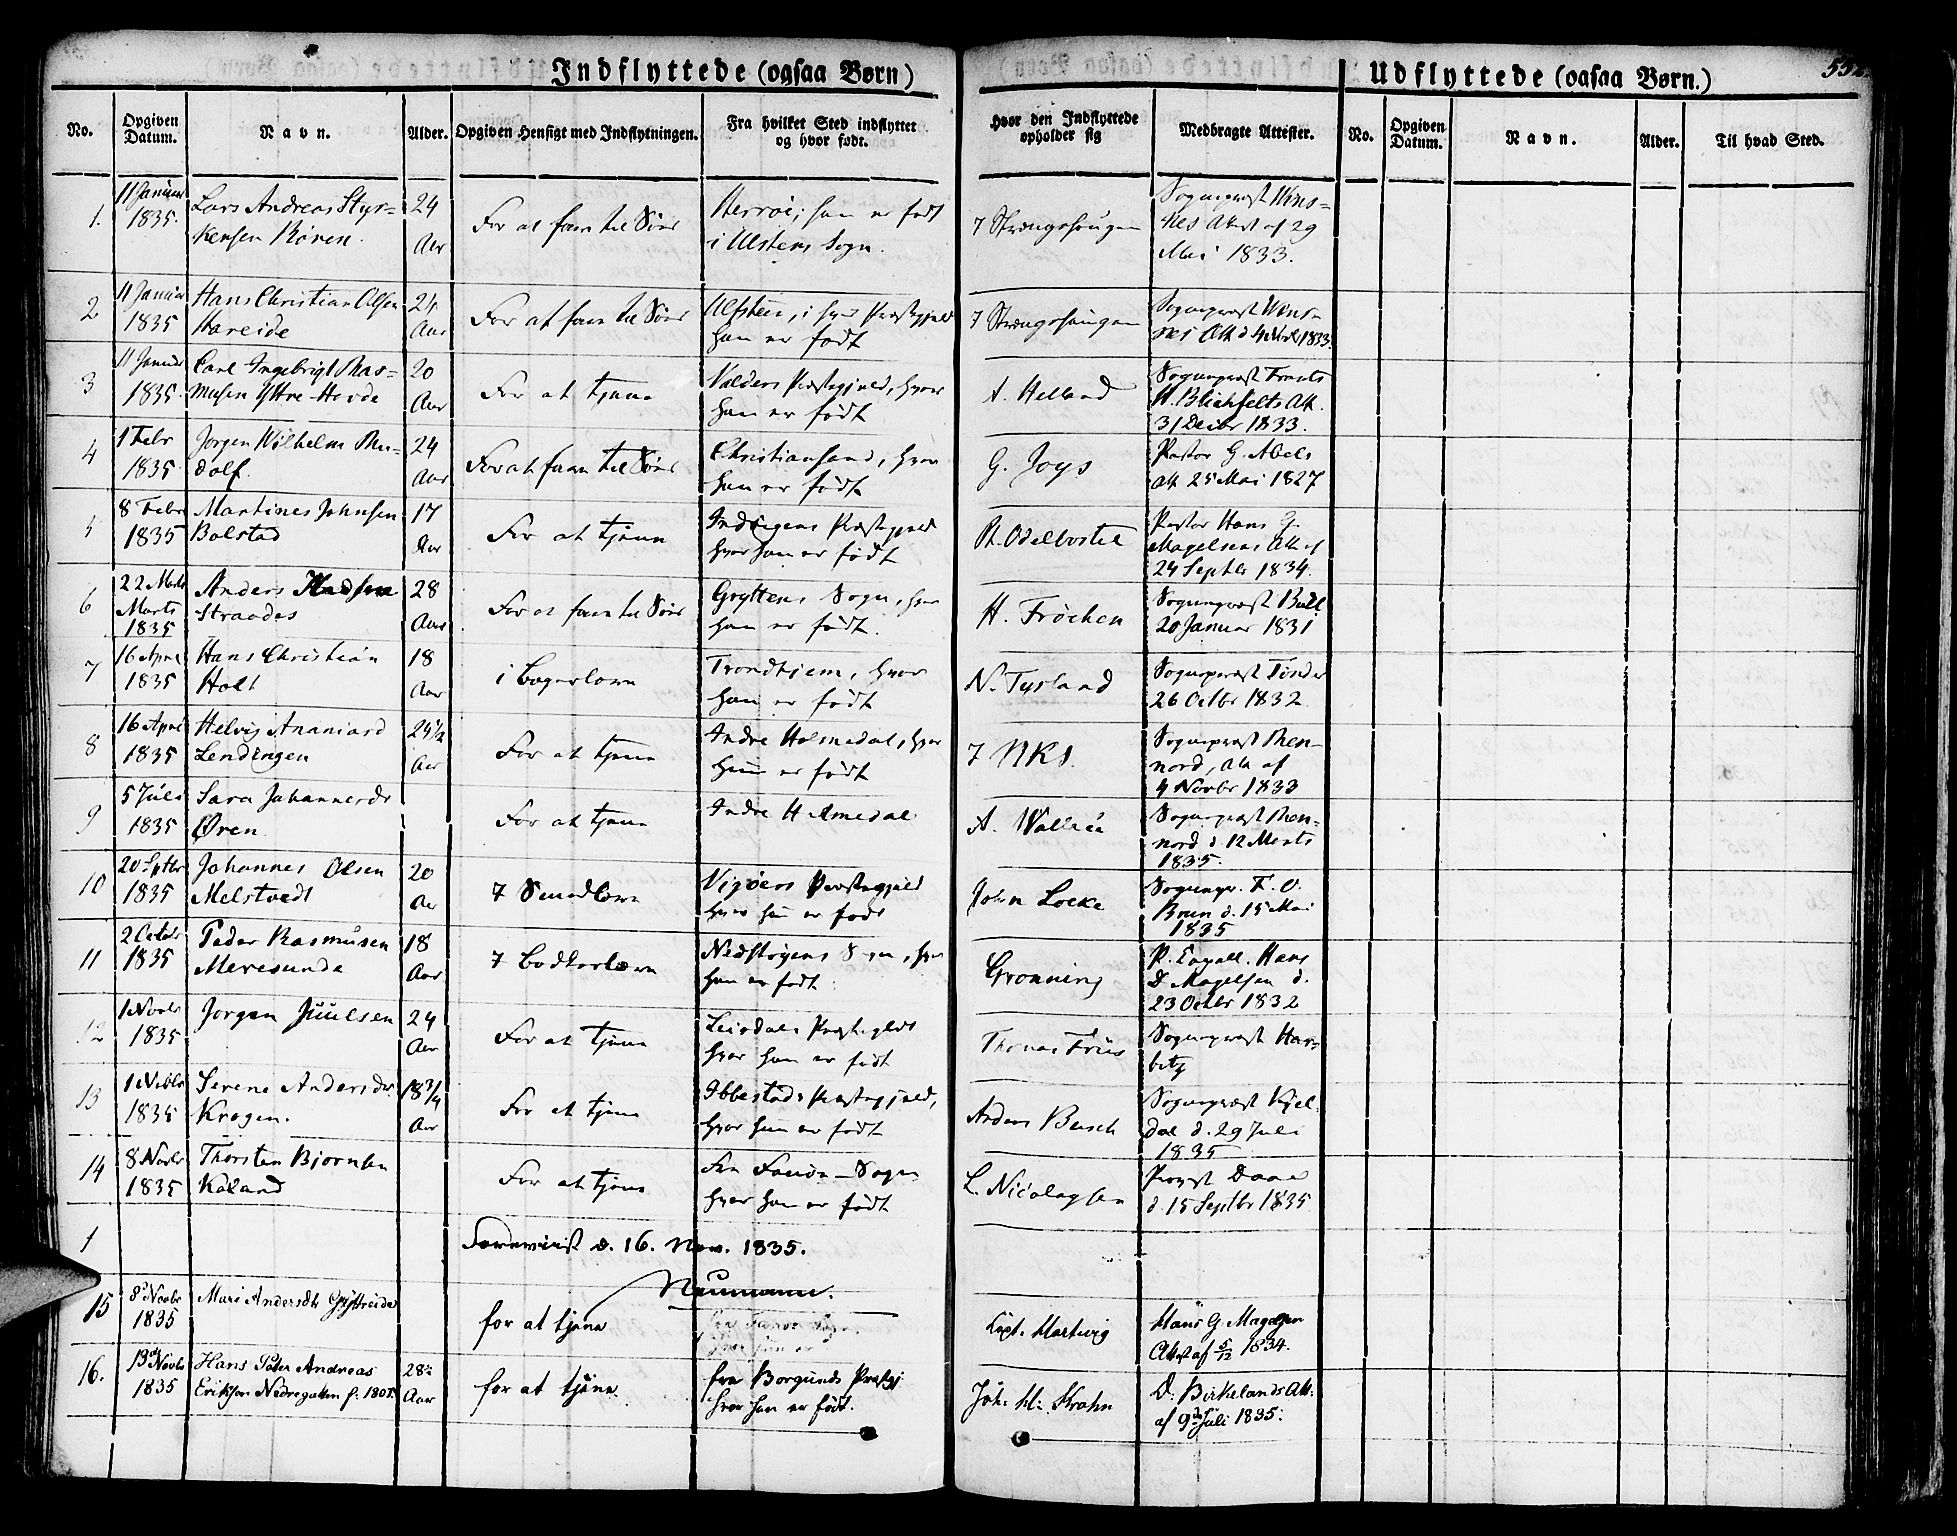 Indflyttede (ogsaa Børn)
No.
Opgiven Datum.
Navn.
Alder.
Opgiven Hensigt med Indflytningen.
Fra hvilket Sted indflyttet og hvor født.
Hvor den Indflyttede opholder sig
Medbragte Attester.
Udflyttede (ogsaa Børn.)
No.
Opgiven Datum.
Navn.
Alder.
Til hvad Sted.
1. 11 Januar 1835. Lars Andreas Styr=
kensen Røren. 24 Aar
For at fare til Søes
Herröe, han er født
i Ulstens Sogn.
7 Strangehougen
Sogneprest
Attest af 29
Mai 1833.
2 11 Januar 1835 Hans Christian Olsen
Hareide 24 Aar
For at fare til Søes
Ulfsten, i hvis Præstegjeld
han er født
7 Strangehougen
Sogneprest
Att d 4 1833.
3 11 Januar 1835. Carl Ingebrigt Ras=
musen Yttre-Hovde 20 Aar
For at tjene
Voldens Præstegjeld, hvor
han er født
A. Helland
Sogneprest
H. Blichfelts Att.
31 Decbr 1833.
4 1 Febr 1835. Jørgen Wilhelm Ru=
dolf. 24 Aar
For at fare til Søes
Christiansand, hvor
han er født
G. Joys
Pastor G. Abels
Att 25 Mai 1827
5 8 Febr 1835 Martines Johnsen
Bolstad 17 Aar
For at tjene
Indvigens Præstegjeld
hvor han er født
R. Odelbostel
Pastor Hans G.
Magelsens Att af
24 Septbr 1834.
6 22 Marts
Marts
1835 Anders
Strandos 28 Aar
For at fare til Søes
Gryttens Sogn, hvor
han er født.
H. Fröchen
Sogneprest Bull
20 Januar 1831
7 16 April 1835 Hans Christian
Holt 18 Aar
i Bagerlære
Trondhjem, hvor
han er født
N. Tysland
Sogneprest Tønder
26 Octbr 1832.
8 16 April 1835 Helvig Ananiasd
Lendingen 24½ Aar
For at tjene
Indre Holmedal, hvor
hun er født
7 NKS.
Sogneprest Ren=
nord, Att af
4 Novbr 1833
9 5 Juli 1835 Sara Johannesdr
Øren.
For at tjene
Indre Holmedal
A. Wallace
Sogneprest Ren=
nord d. 12 Marts
1835.
10 20 Septbr 1835 Johannes Olsen
Melstvedt 20 Aar
7 Smedlære
Vigøers Præstegjeld
hvor han er født
John Locke
Sognepr. F. O.
Brun d. 15 Mai
1835
11 2 Octobr 1835 Peder Rasmusen
Meresunde 18 Aar
7 Bødkerlære
Nedstrynens Sogn, hvor
han er født
Gronning
P. Capell. Hans
D Magelsen d.
23 Octbr 1832
12 1 Novbr 1835 Jørgen Juulsen 24 Aar
For at tjene
Leirdals Præstegjeld
hvor han er født
Thomas Friis
Sogneprest Har=
bitz
13 1 Novbr 1835 Serene Andersdr.
Krogen. 18¾ Aar
For at tjene
Ibbestads Præstegjeld,
hvor hun er født
Anders Beusch
Sogneprest Kjel
dal d. 29 Juli
1835
14 8 Novbr 1835 Thorsten Bjørnsen
Kaland
For at tjene
Fra Fanöe-Sogn
hvor han er født
L. Nicolaysen
Provst Daae
d. 15 Septbr 1835
1
Foreviist d. 16. Nov. 1835.
Neumann.
15 8de Novbr 1835 Mari Andersdtr
for at tjene
Capt. Hartwig
Hans G. Magelsen
Attest af 5/12 1834.
16. 13de Novbr 1835 Hans Peter Andreas
Eriksen Nedregotten f: 1807. 28 Aar
for at tjene.
fra Borgunds Præstgj
hvor han er født.
Joh. M: Krohn
D: Birkelands Att:
af 9de Juli 1835: